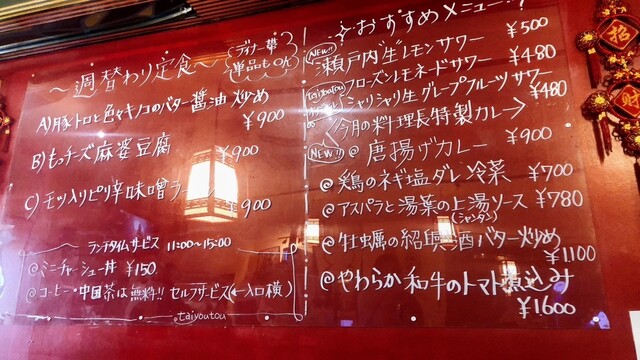 ～週替わり定食～
ディナー帯
単品もOK
A)豚トロと色々キノコのバター醤油炒め
¥900
B)もっチーズ麻婆豆腐
¥900
C)モツ入りピリ辛味噌ラーメン
¥900
ランチタイムサービス 11:00～15:00
@ミニチャーシュー丼 ¥150
@コーヒー・中国茶は無料!! セルフサービス(←入口横)
taiyoutou
おすすめメニュー
NEW!! 瀬戸内生レモンサワー ¥500
フローズンレモネードサワー ¥480
taiyoutou
シャリシャリ生グレープフルーツサワー ¥480
今月の料理長特製カレー→
NEW!! @唐揚げカレー ¥900
@鶏のネギ塩ダレ冷菜 ¥700
@アスパラと湯葉の上湯ソース ¥780
(シャンタン)
@牡蠣の紹興酒バター炒め
¥1100
@やわらか和牛のトマト煮込み
¥1600
招